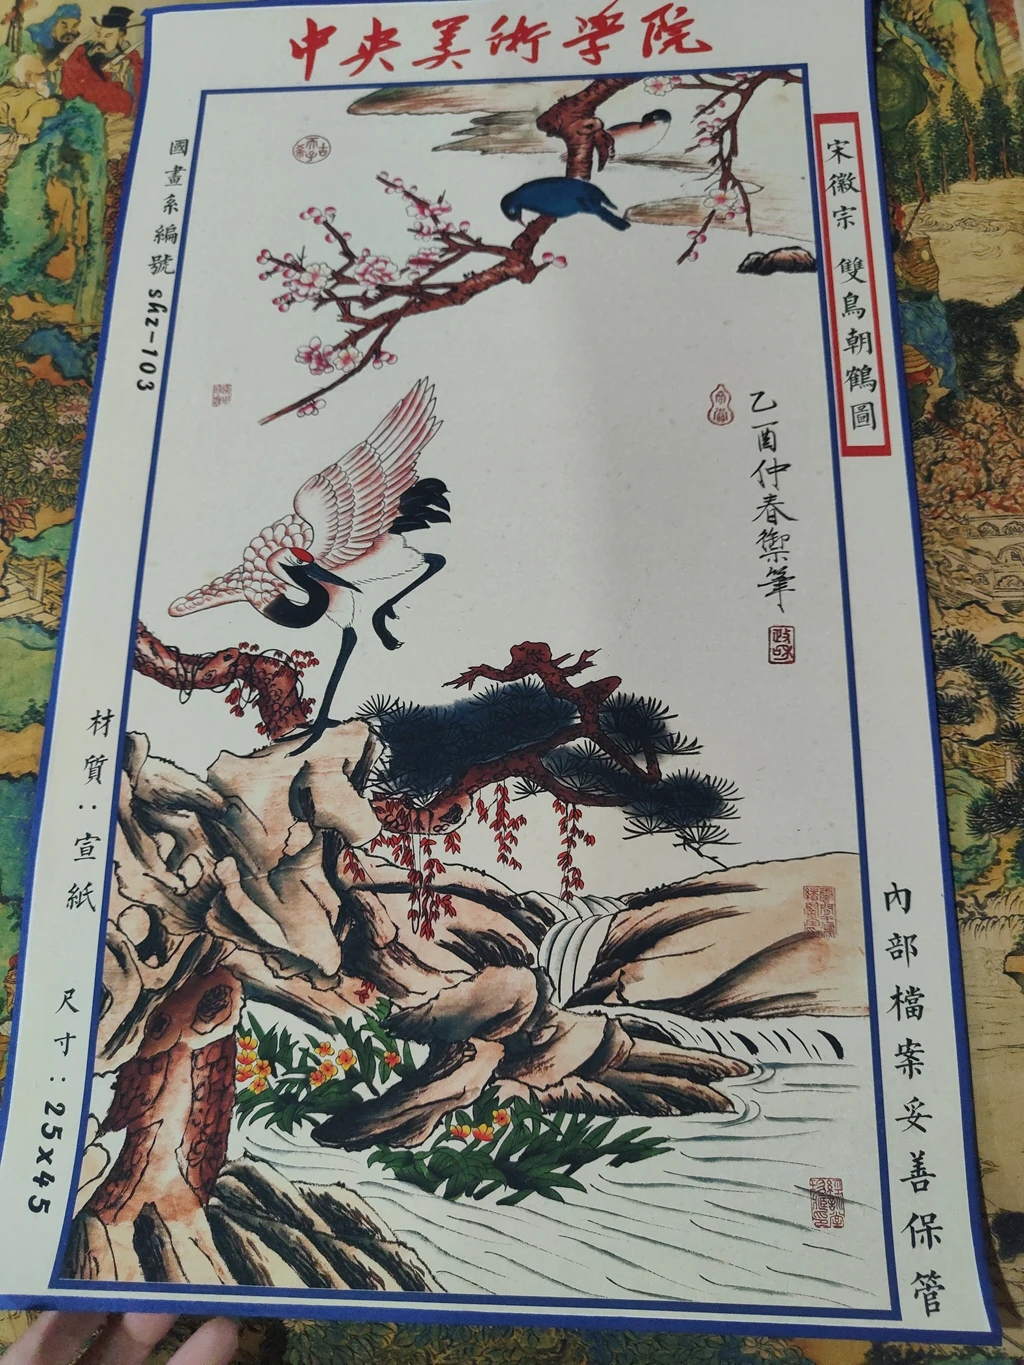 中央美術學院
宋徽宗 雙鳥朝鶴圖
國畫系編號 shz-103
乙酉仲春御筆
政和
材質：宣紙
尺寸：25x45
內部檔案妥善保管